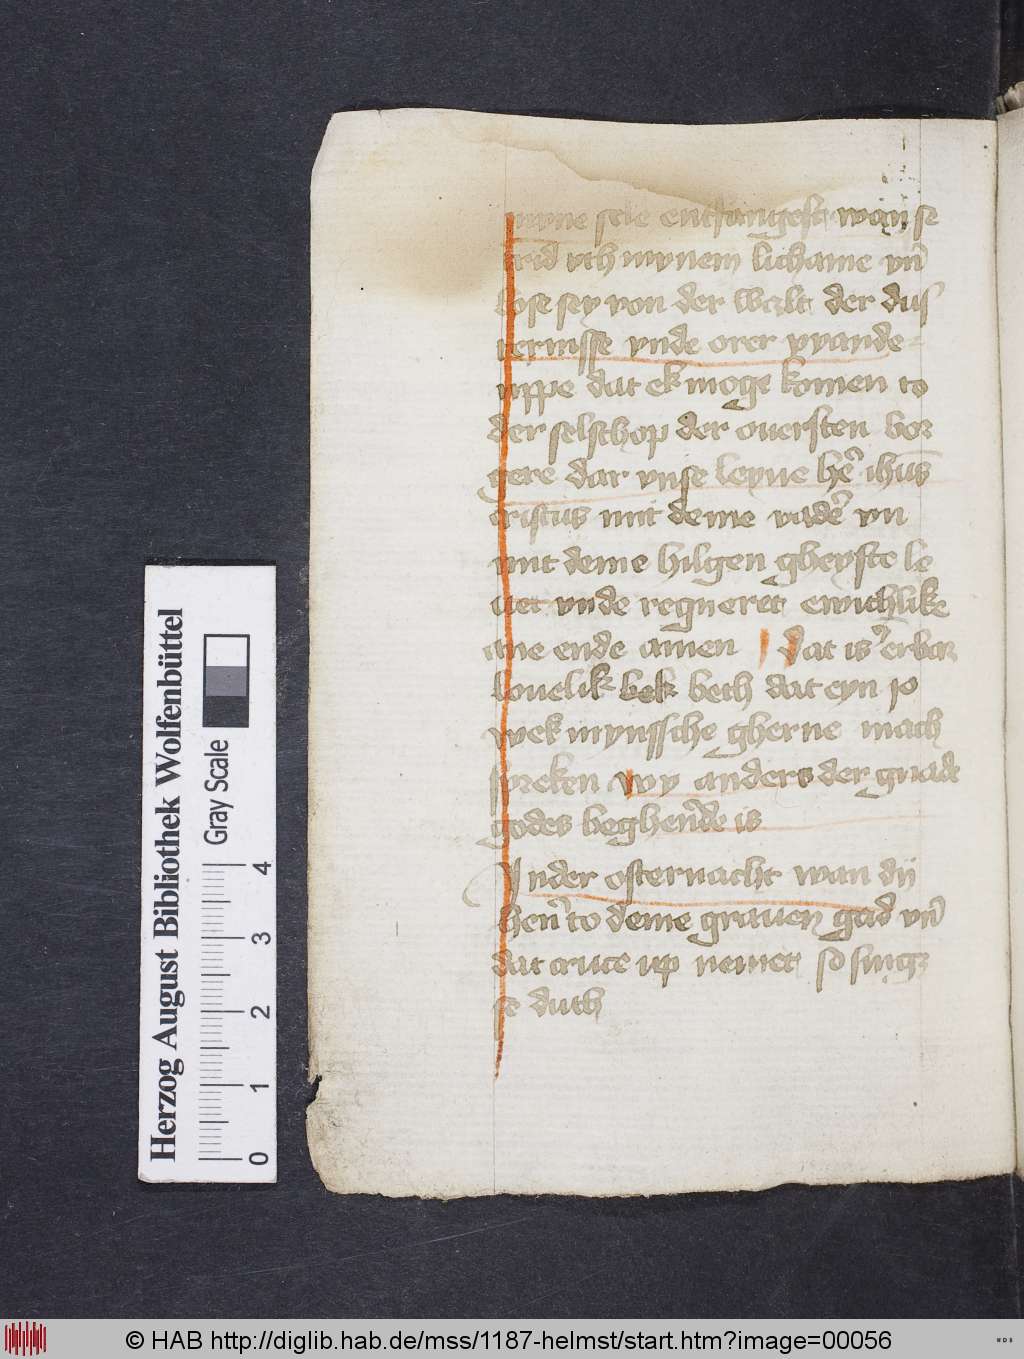 myne sele entfangest wan se
trid vth mynem lichame vn̄
lose sey von der walt der dus
ternisse vnde orer vyande
uppe dat ek moge komen to
der selschop der ouersten bor
gere dar vnse leyue her̄ ihūs
cristus mit deme vader̄ vn
mit deme hilgen gheyste le
uet vnde regneret ewichlike
ane ende amen dat is erbar
louelik bek beth dat eyn io
wek mynssche gherne mach
spreken wy anders der gnade
godes begherd̄e is
In der osternacht wan dÿ
hern̄ to deme grauen gad vn̄
dat cruce up nemet so sing
se duth
Herzog August Bibliothek Wolfenbüttel
Gray Scale
0 1 2 3 4
© HAB http://diglib.hab.de/mss/1187-helmst/start.htm?image=00056